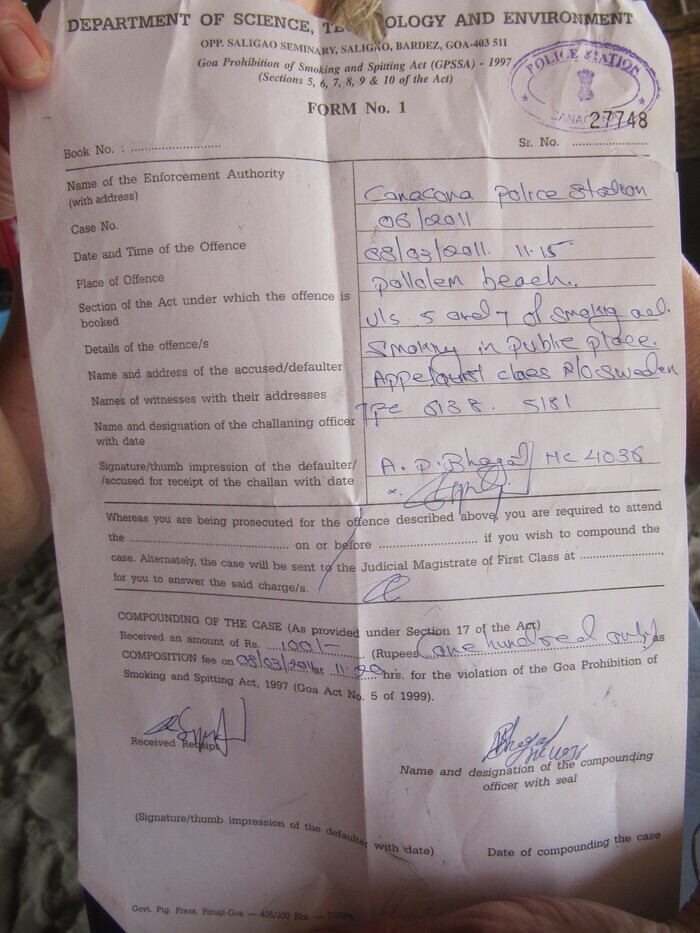 DEPARTMENT OF SCIENCE, TE OLOGY AND ENVIRONMENT
OPP. SALIGAO SEMINARY, SALIGAO, BARDEZ, GOA-403 511
Goa Prohibition of Smoking and Spitting Act (GPSSA) - 1997
(Sections 5, 6, 7, 8, 9 & 10 of the Act)
POLICE STATION
CANAC
FORM No. 1
27748
Book No. : ........................
Sr. No. ....................
Name of the Enforcement Authority
(with address)
Canacona Police Station
Case No.
06/2011
Date and Time of the Offence
08/03/2011. 11.15
Place of Offence
pollolem beach.
Section of the Act under which the offence is
booked
U/s 5 and 7 of Smoking act.
Details of the offence/s
Smoking in public place.
Name and address of the accused/defaulter
claes R/o Sweden
Names of witnesses with their addresses
PC 6138. 5181
Name and designation of the challaning officer
with date
A. P. Bhagat HC 4036
Signature/thumb impression of the defaulter/
/accused for receipt of the challan with date
x.
Whereas you are being prosecuted for the offence described above, you are required to attend
the ........................................ on or before ......................... if you wish to compound the
case. Alternately, the case will be sent to the Judicial Magistrate of First Class at .....................,
for you to answer the said charge/s.
COMPOUNDING OF THE CASE (As provided under Section 17 of the Act)
Received an amount of Rs. 100/- (Rupees One hundred only) as
COMPOSITION fee on 08/03/2011 at 11.20 hrs. for the violation of the Goa Prohibition of
Smoking and Spitting Act, 1997 (Goa Act No. 5 of 1999).
Received Receipt
Name and designation of the compounding
officer with seal
(Signature/thumb impression of the defaulter with date)
Date of compounding the case
Govt. Ptg. Press, Panaji-Goa — 406/200 Bks. —